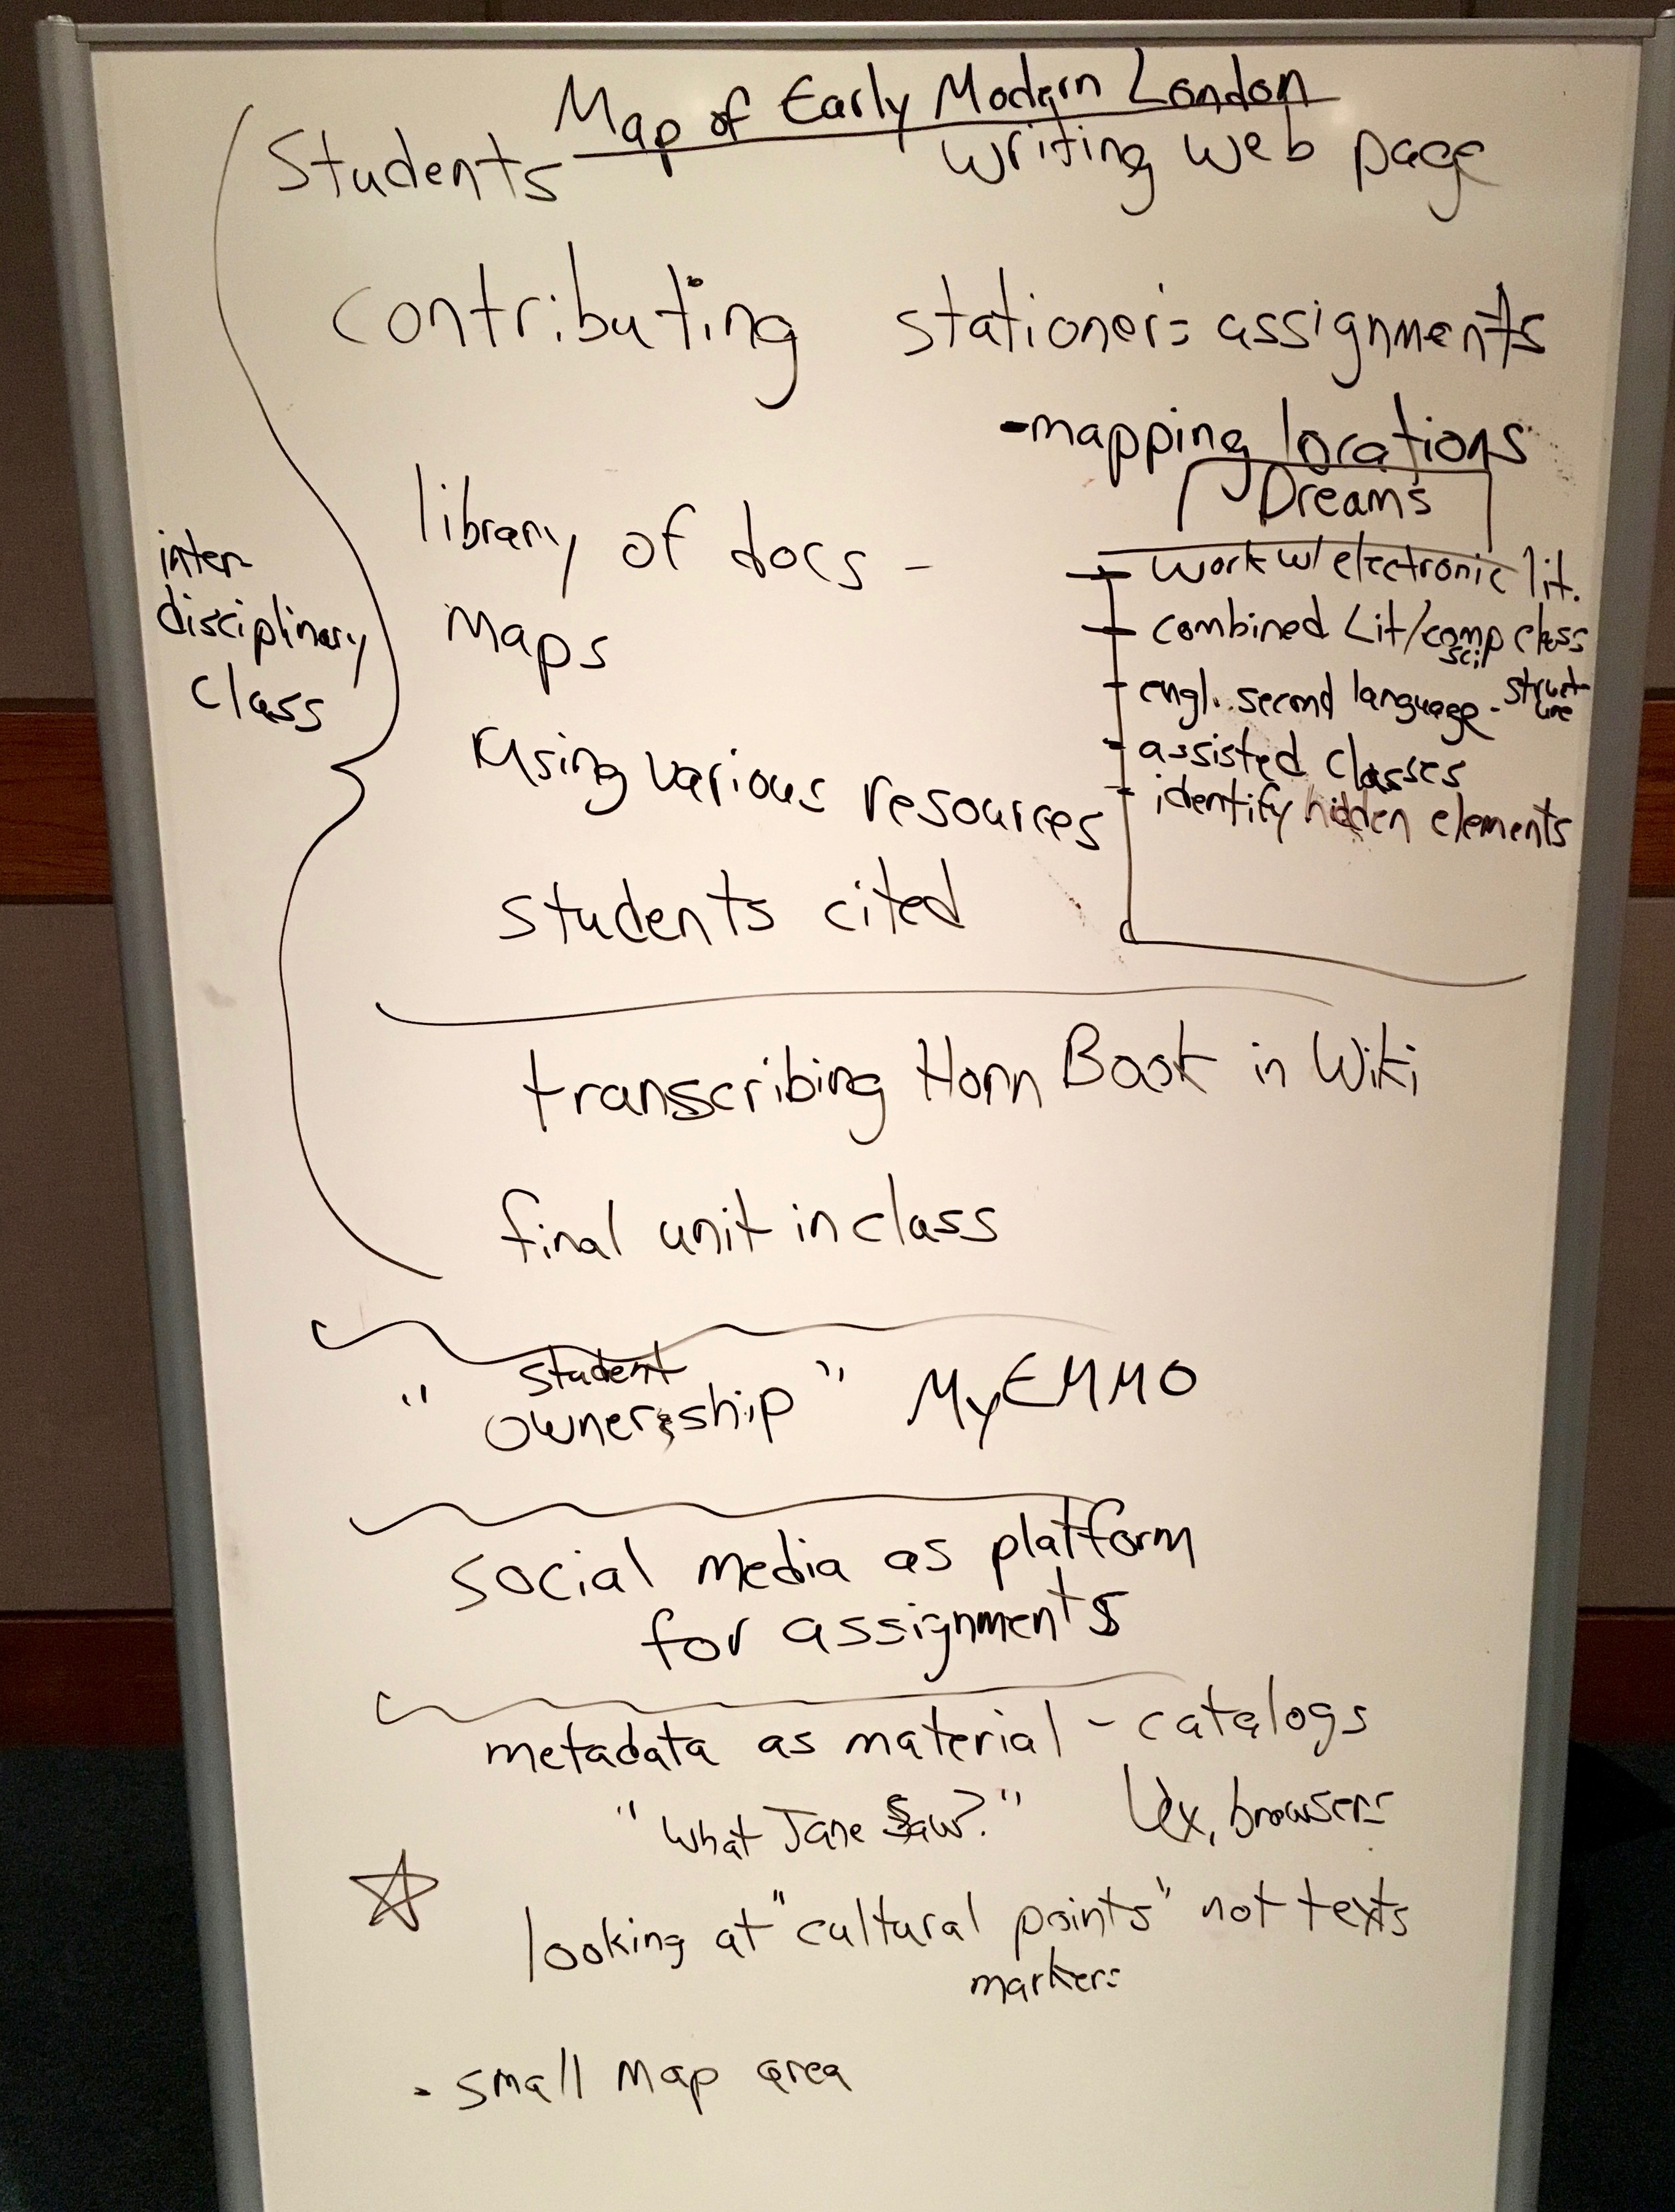 Map of Early Modern London
Students writing web page
contributing stationer's assignments
-mapping locations
library of docs -
maps
using various resources
students cited
inter-
disciplinary
class
Dreams
work w/ electronic lit.
combined Lit/comp sci class
engl. second language - structure
assisted classes
identify hidden elements
transcribing Horn Book in Wiki
final unit in class
"student
ownership" MyEMMO
social media as platform
for assignments
metadata as material - catalogs
"What Jane Saw?" browsers
looking at "cultural points" not texts
markers
- small map area